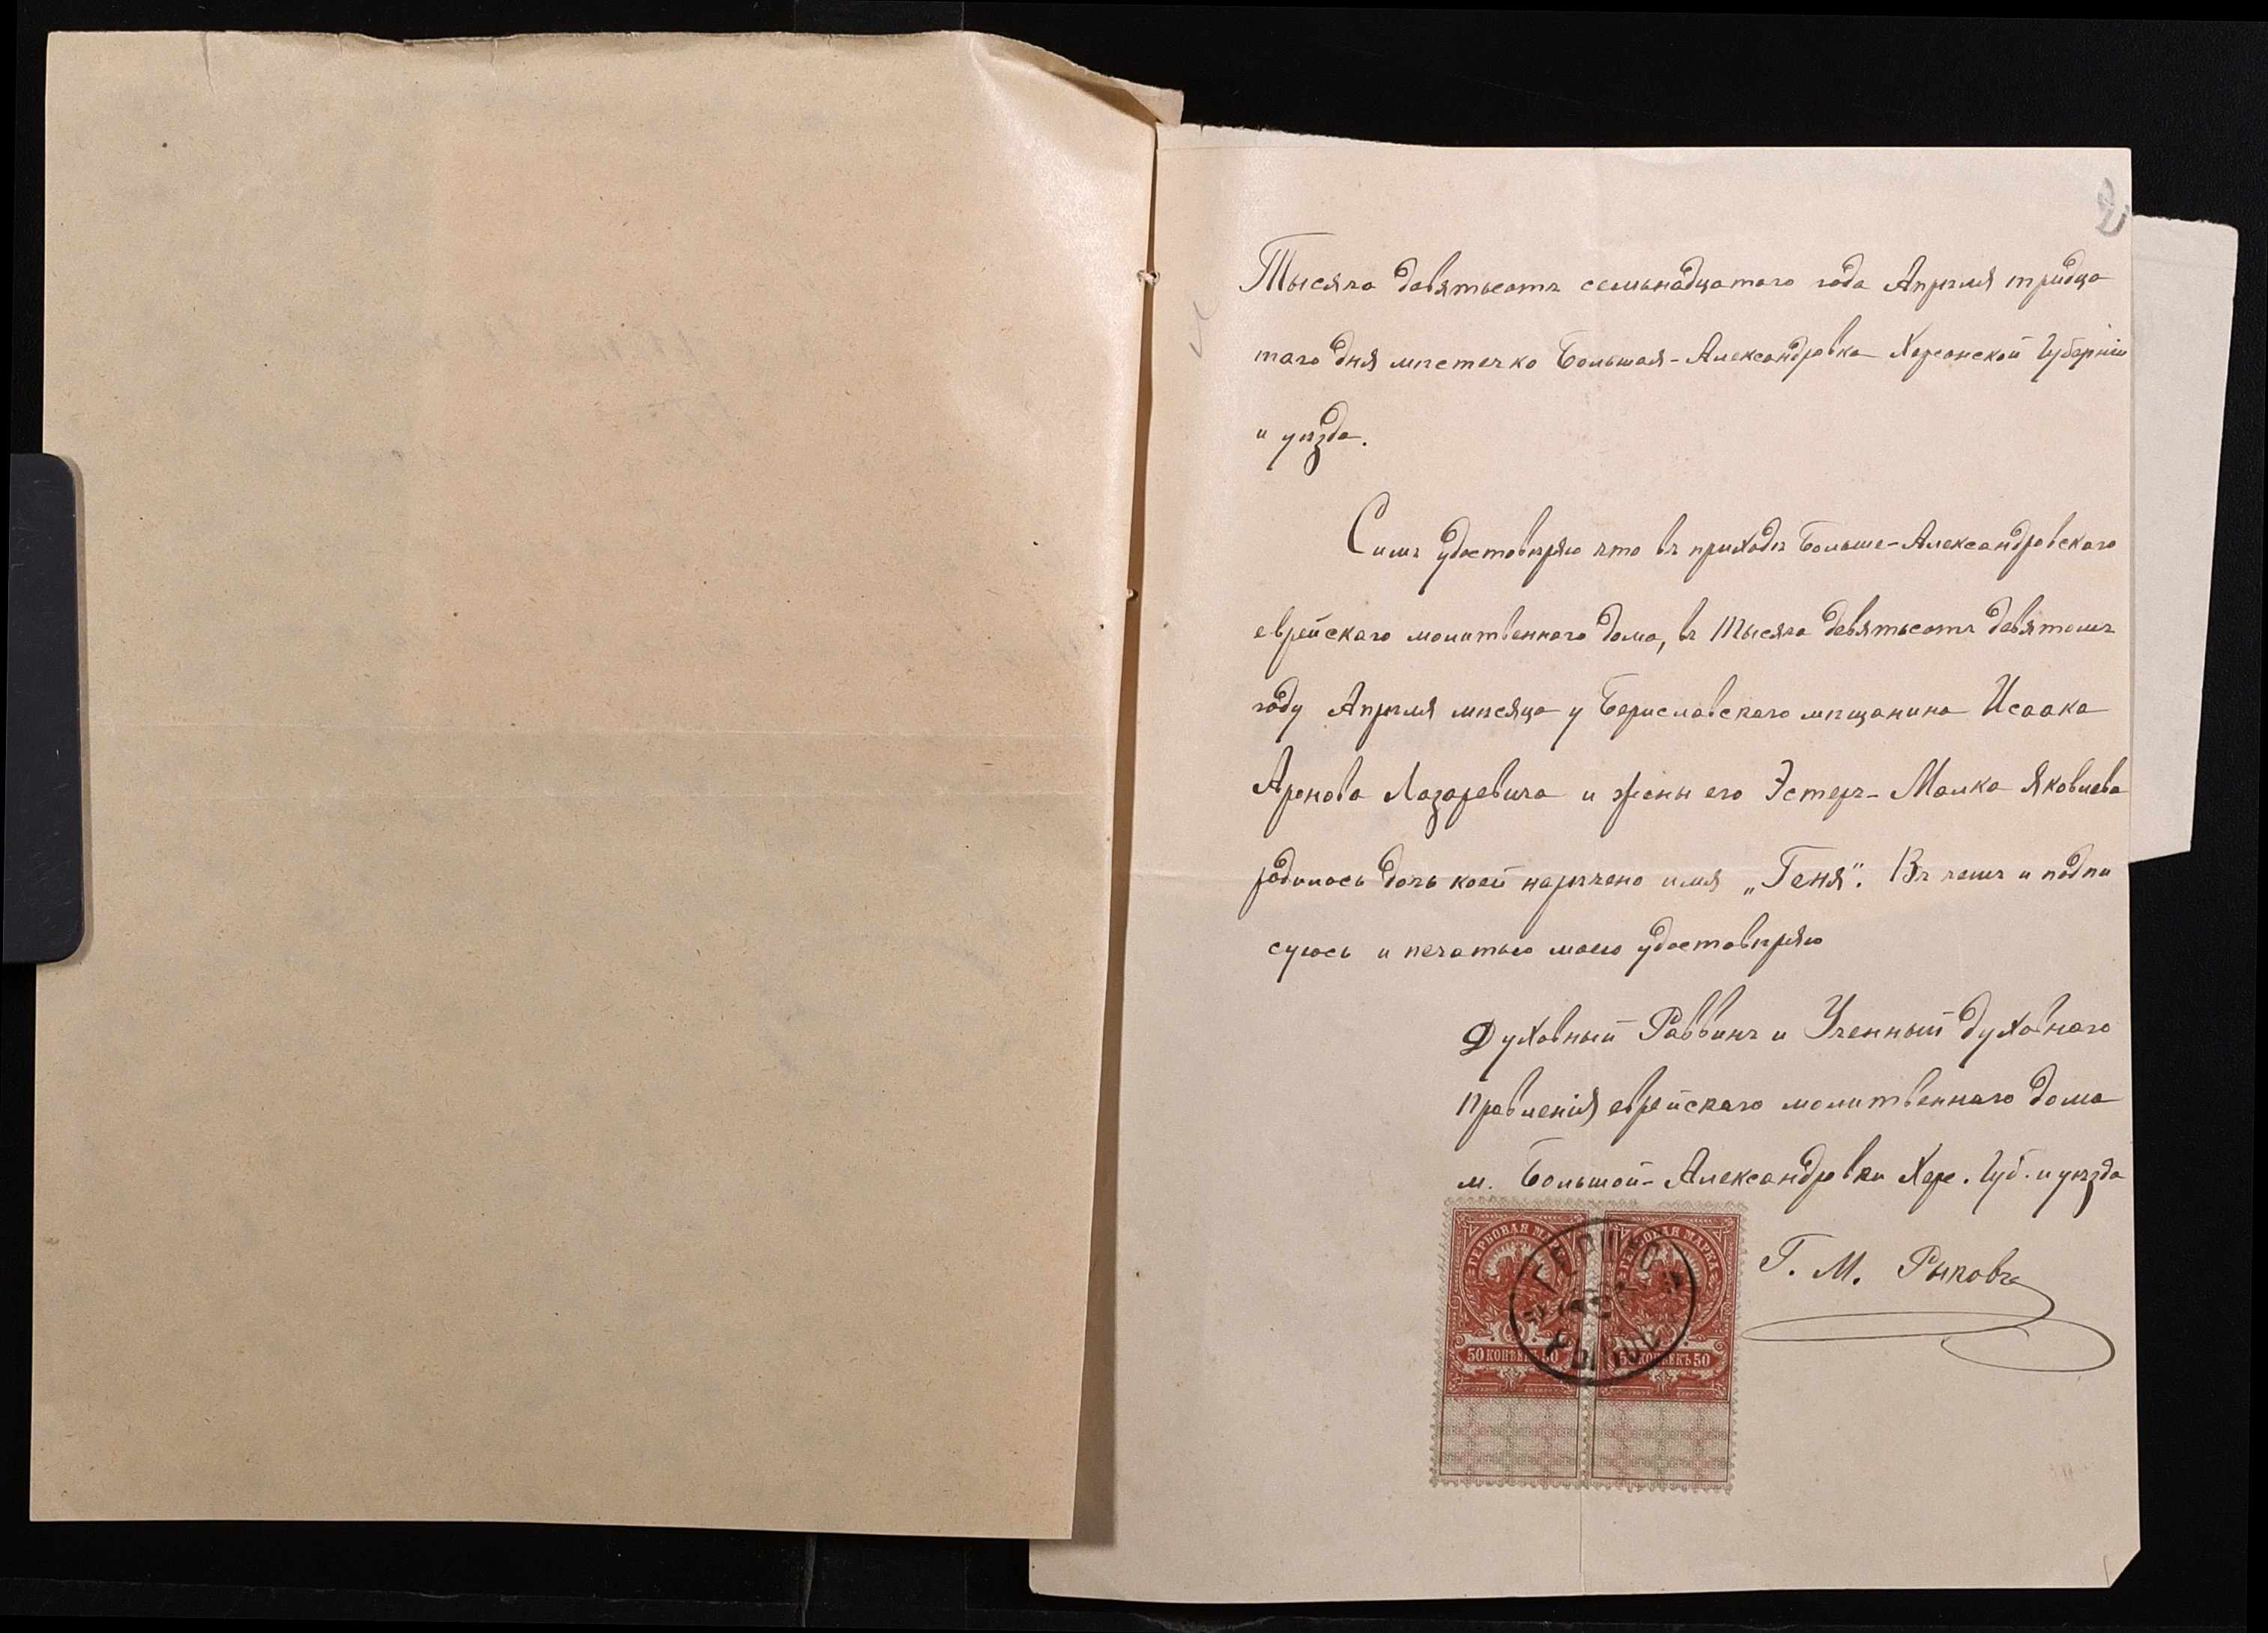 2
Тысяча девятьсотъ семьнадцатаго года Апрѣля тридца
таго дня мѣстечко Большая-Александровка Херсонской Губерніи
и уѣзда.
Симъ удостовѣряю что въ приходѣ Больше-Александровскаго
еврейскаго молитвеннаго дома, въ тысяча девятьсотъ девятомъ
году Апрѣля мѣсяца у Бериславскаго мѣщанина Исаака
Аронова Лазаревича и жены его Эстеръ-Малка Яковлева
родилась дочь коей наречено имя „Геня“. Въ чемъ и подпи
суюсь и печатью моею удостовѣряю
Духовный Раввинъ и Ученный духовнаго
правленія еврейскаго молитвеннаго дома
м. Большой-Александровки Хер. Губ. и уѣзда
Г. М. Рыковъ
ГЕРБОВАЯ МАРКА ГЕРБОВАЯ МАРКА
50 КОПѢЕКЪ 50 50 КОПѢЕКЪ 50